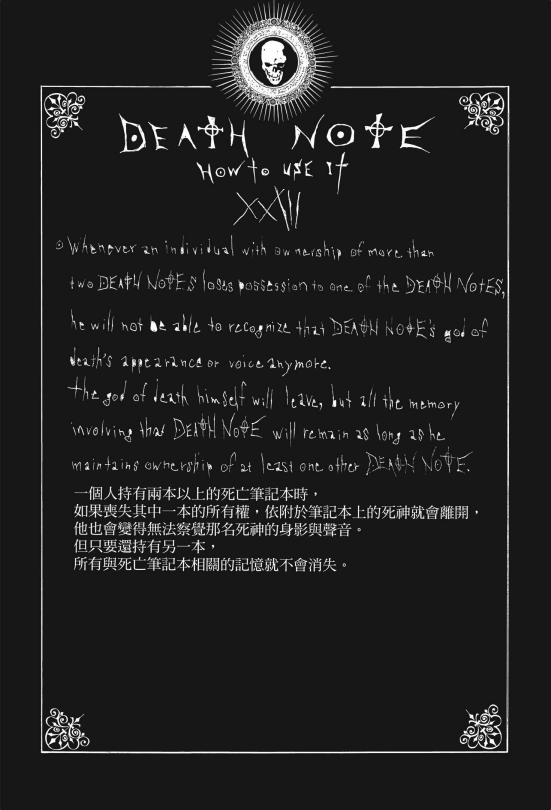 DEATH NOTE
HOW to USE IT
XXII
Whenever an individual with ownership of more than
two DEATH NOTES loses possession to one of the DEATH NOTES,
he will not be able to recognize that DEATH NOTE's god of
death's appearance or voice anymore.
The god of death himself will leave, but all the memory
involving that DEATH NOTE will remain as long as he
maintains ownership of at least one other DEATH NOTE.
一個人持有兩本以上的死亡筆記本時，
如果喪失其中一本的所有權，依附於筆記本上的死神就會離開，
他也會變得無法察覺那名死神的身影與聲音。
但只要還持有另一本，
所有與死亡筆記本相關的記憶就不會消失。